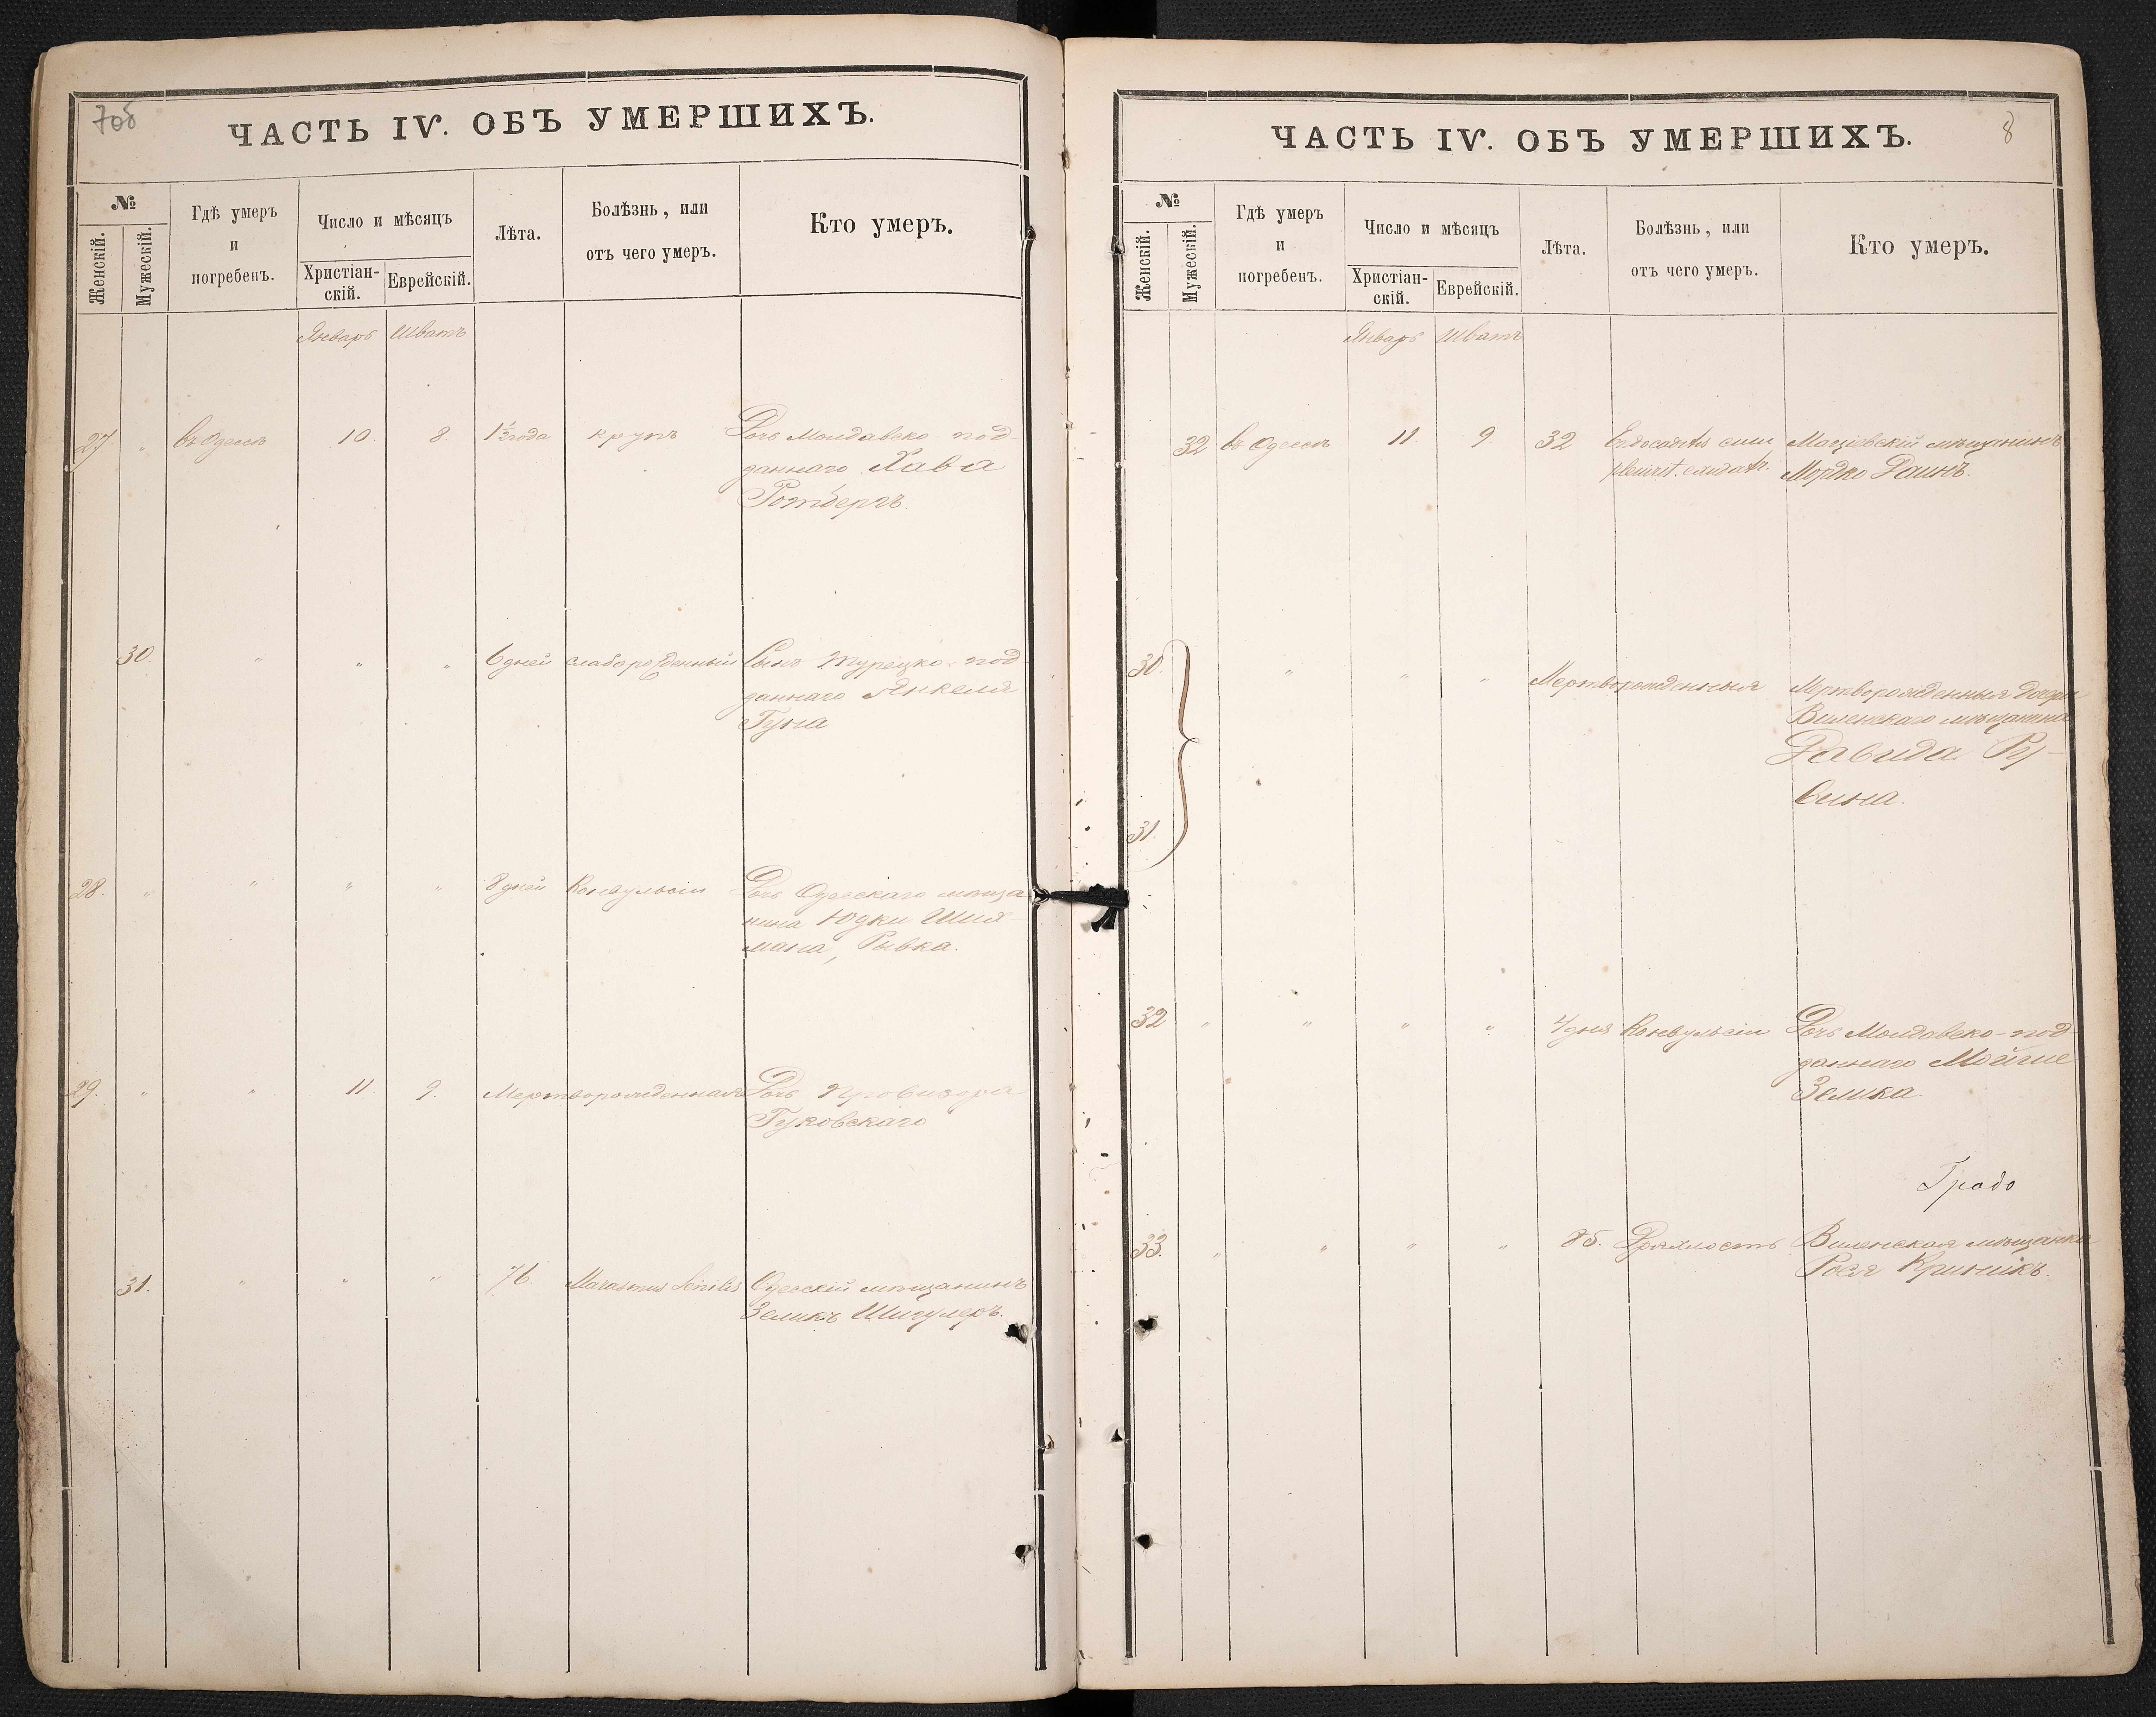 7об
ЧАСТЬ IV. ОБЪ УМЕРШИХЪ.
№
Женскій.
Мужескій.
Гдѣ умеръ
и
погребенъ.
Число и мѣсяцъ
Христіан-
скій.
Еврейскій.
Лѣта.
Болѣзнь, или
отъ чего умеръ.
Кто умеръ.
Январь Шватъ
27 " въ Одессѣ 10 8. 1½ года крупъ Дочь Молдавско-под-
даннаго Хава
Ротбергъ.
30. " " " 6 дней слаборожденный Сынъ Турецко-под-
даннаго Янкеля
Гуна
28. " " " " 8 дней Конвульсіи Дочь Одесскаго мѣща
нина Юдки Шил-
мана, Рывка.
29. " " 11. 9. Мертворожденная Дочь Провизора
Гуковскаго
31. " " " 76. Marasmus Senilis Одесскій мѣщанинъ
Зеликъ
ЧАСТЬ IV. ОБЪ УМЕРШИХЪ.
8
№
Женскій.
Мужескій.
Гдѣ умеръ
и
погребенъ.
Число и мѣсяцъ
Христіан-
скій.
Еврейскій.
Лѣта.
Болѣзнь, или
отъ чего умеръ.
Кто умеръ.
Январь Шватъ
32 въ Одессѣ 11 9 32 мѣщанинъ
Мордко
30. " " " Мертворожденныя Мертворожденныя дочери
Виленскаго мѣщанина
Давида Ру-
бина.
31.
32 " " " " 4 дня Конвульсіи Дочь Молдавско-под-
даннаго Мойше
Зелика.
33. " " " " 85. Дряхлость Виленская мѣщанка
Рося Криникъ.